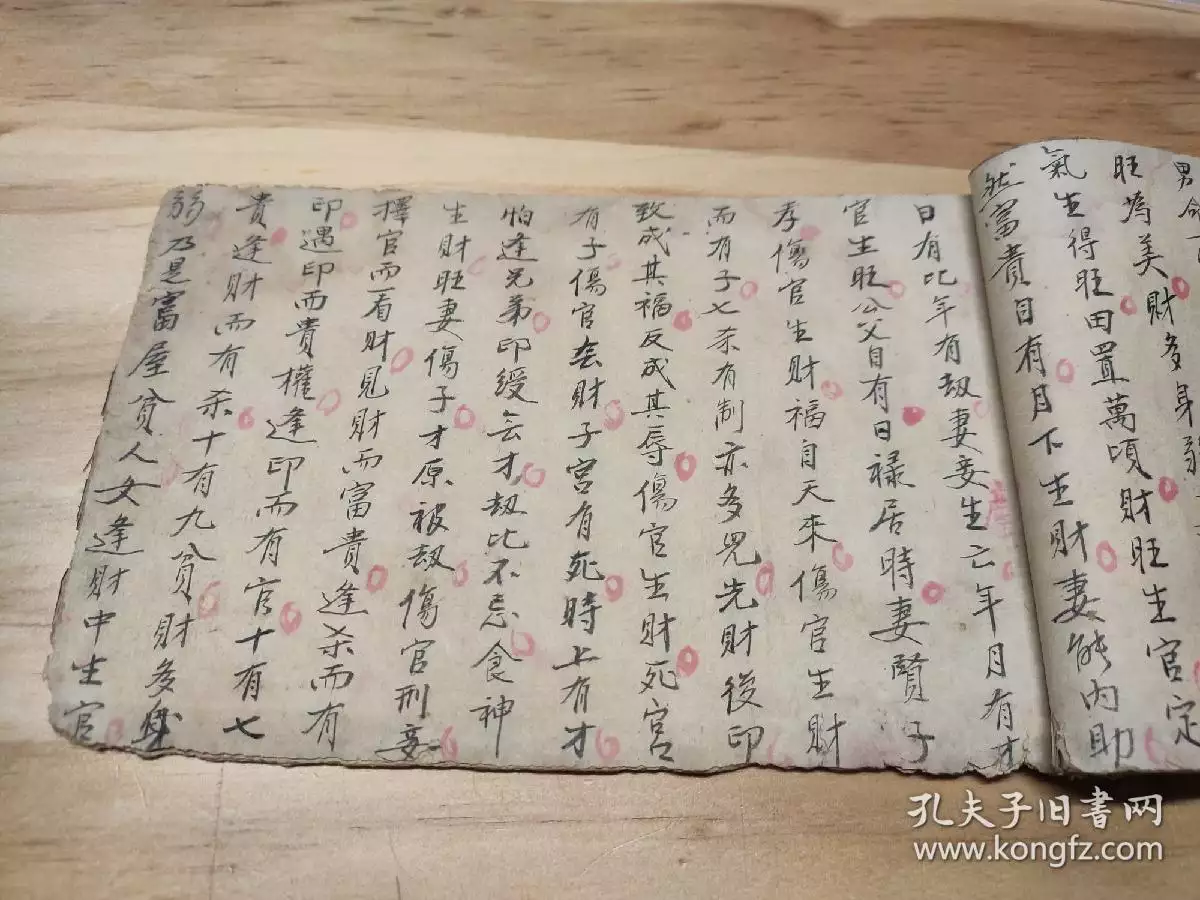 男命
旺為美財多身弱
氣生得旺田置萬頃財旺生官定
然富貴目有月下生財妻能內助
日有比年有刼妻妾生亡年月有才
官生旺公父自有日禄居時妻賢子
孝傷官生財福自天來傷官生財
而有子七杀有制亦多児先財後印
致成其福反成其辱傷官生財死宫
有子傷官無財子宫有死時上有才
怕逢兄弟印绶会才刼比不忌食神
生財旺妻傷子才原被刼傷官刑妾
擇官而看財見財而富貴逢杀而有
印遇印而貴權逢印而有官十有七
貴逢財而有杀十有九貧財多身
弱乃是富屋貧人女逢財中生官
孔夫子旧书网
www.kongfz.com